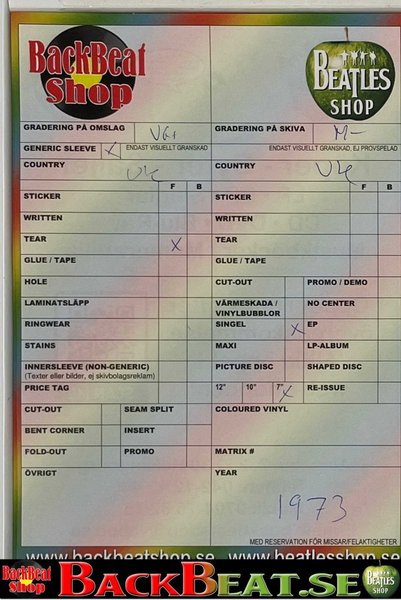 BackBeat
Shop
BEATLES
SHOP
GRADERING PÅ OMSLAG VG+
GRADERING PÅ SKIVA M-
GENERIC SLEEVE X ENDAST VISUELLT GRANSKAD
ENDAST VISUELLT GRANSKAD, EJ PROVSPELAD
COUNTRY UK
COUNTRY UK
F B
F B
STICKER
STICKER
WRITTEN
WRITTEN
TEAR X
TEAR
GLUE / TAPE
GLUE / TAPE
HOLE
CUT-OUT PROMO / DEMO
LAMINATSLÄPP
VÄRMESKADA / VINYLBUBBLOR NO CENTER
RINGWEAR
SINGEL X EP
STAINS
MAXI LP-ALBUM
INNERSLEEVE (NON-GENERIC)
(Texter eller bilder, ej skivbolagsreklam)
PICTURE DISC SHAPED DISC
PRICE TAG
12" 10" 7" X RE-ISSUE
CUT-OUT SEAM SPLIT
COLOURED VINYL
BENT CORNER INSERT
FOLD-OUT PROMO
MATRIX #
ÖVRIGT
YEAR
1973
MED RESERVATION FÖR MISSAR/FELAKTIGHETER
www.backbeatshop.se www.beatlesshop.se
BackBeat
Shop
BACKBEAT.SE
BEATLES
SHOP